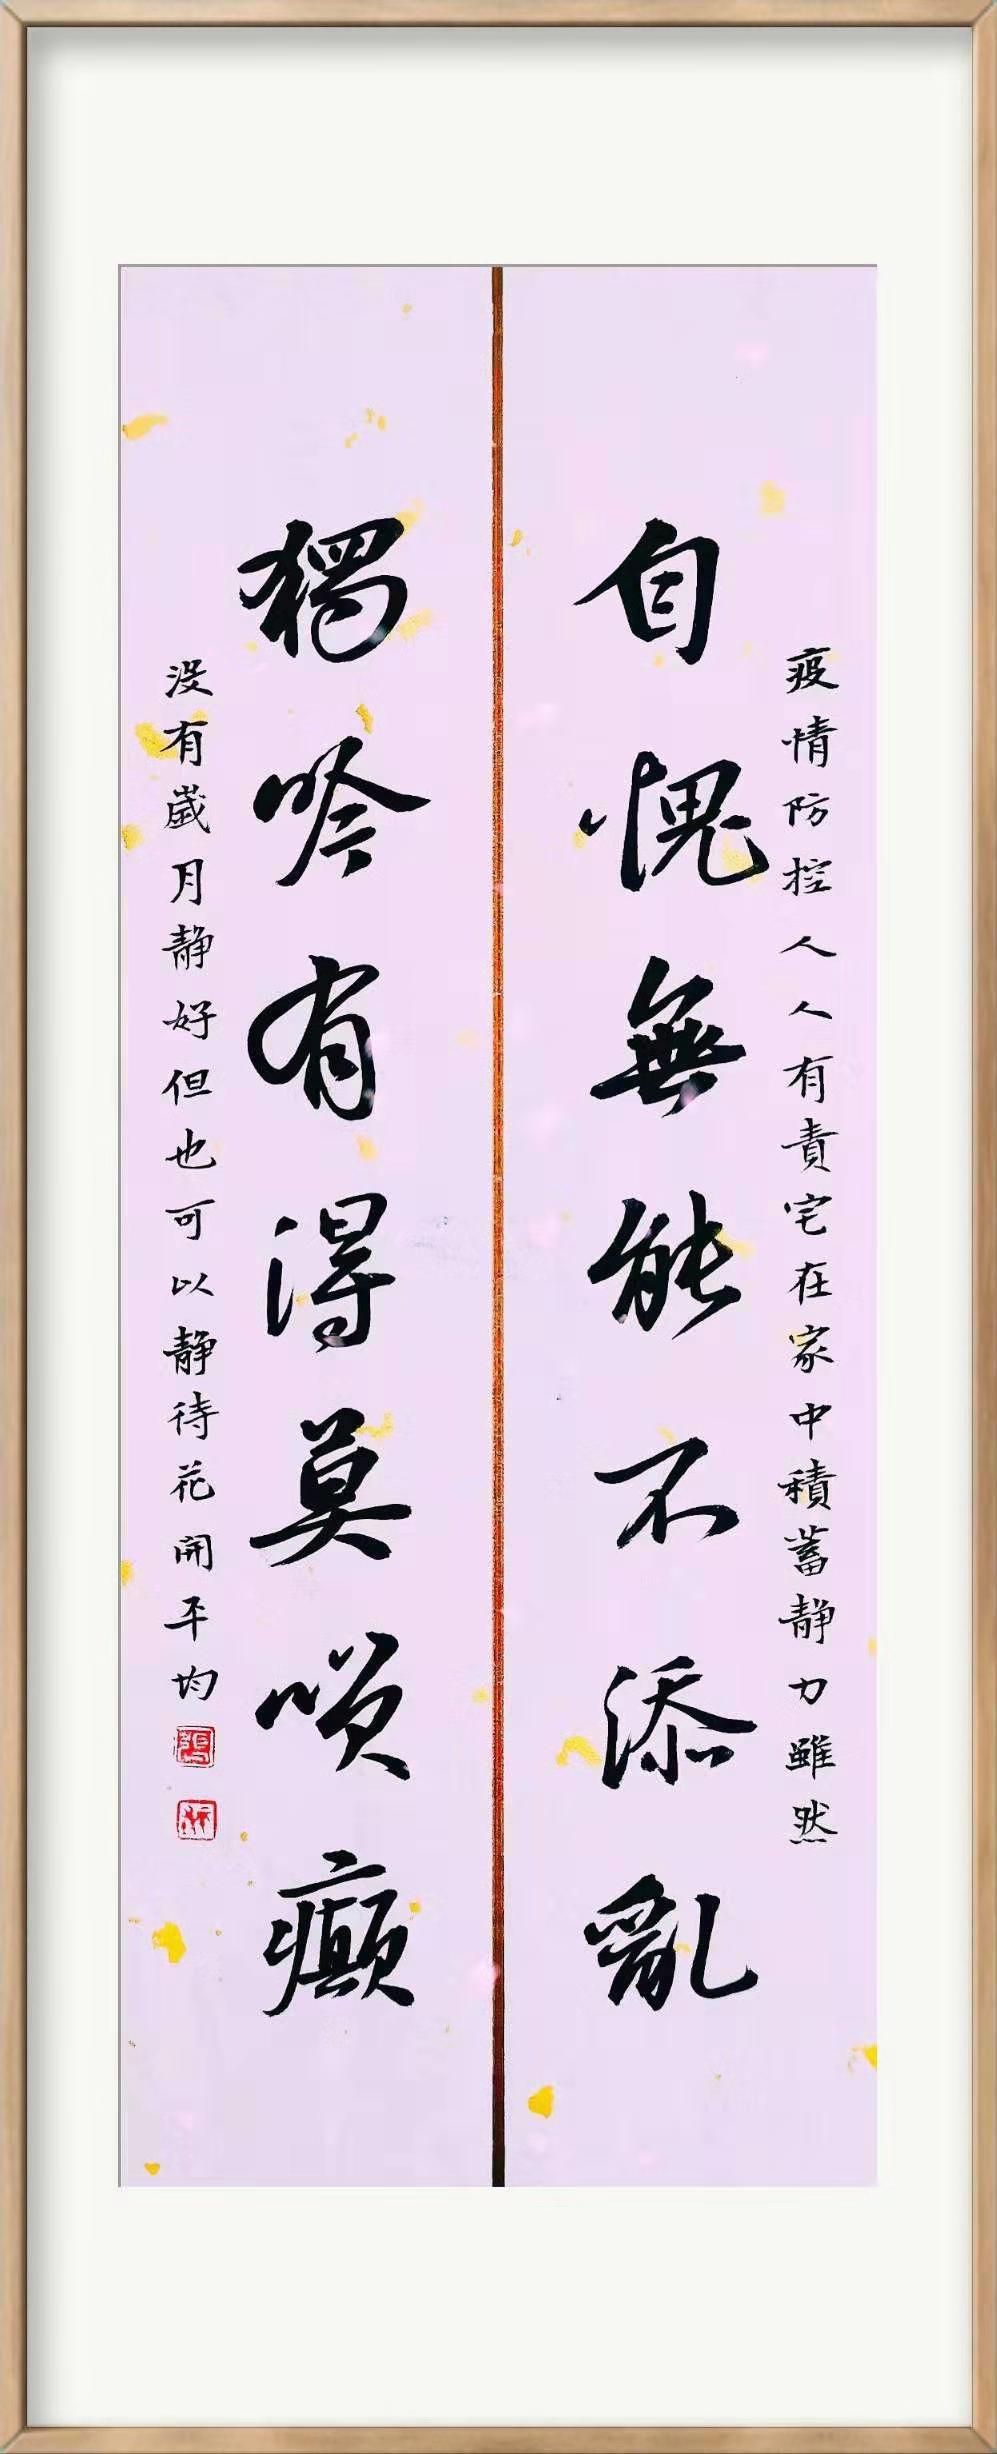 疫情防控人人有責宅在家中積蓄静力雖然
自愧無能不添亂
獨吟有得莫嗔癲
没有歲月静好但也可以静待花開平均